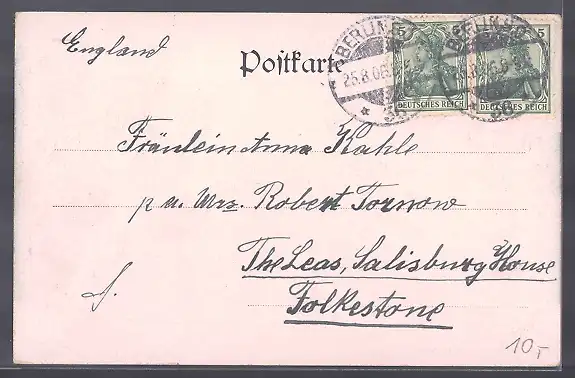 England
Postkarte
BERLIN
25.8.06
5
DEUTSCHES REICH
5
DEUTSCHES REICH
Fräulein Anna Kahle
p. a. Mrs. Robert Tornow
The Leas, Salisburg House
Folkestone
10,-